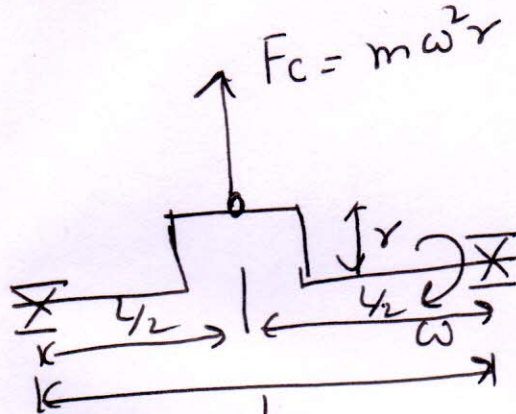 Fc = mω²r
r
L/2
L/2
ω
L